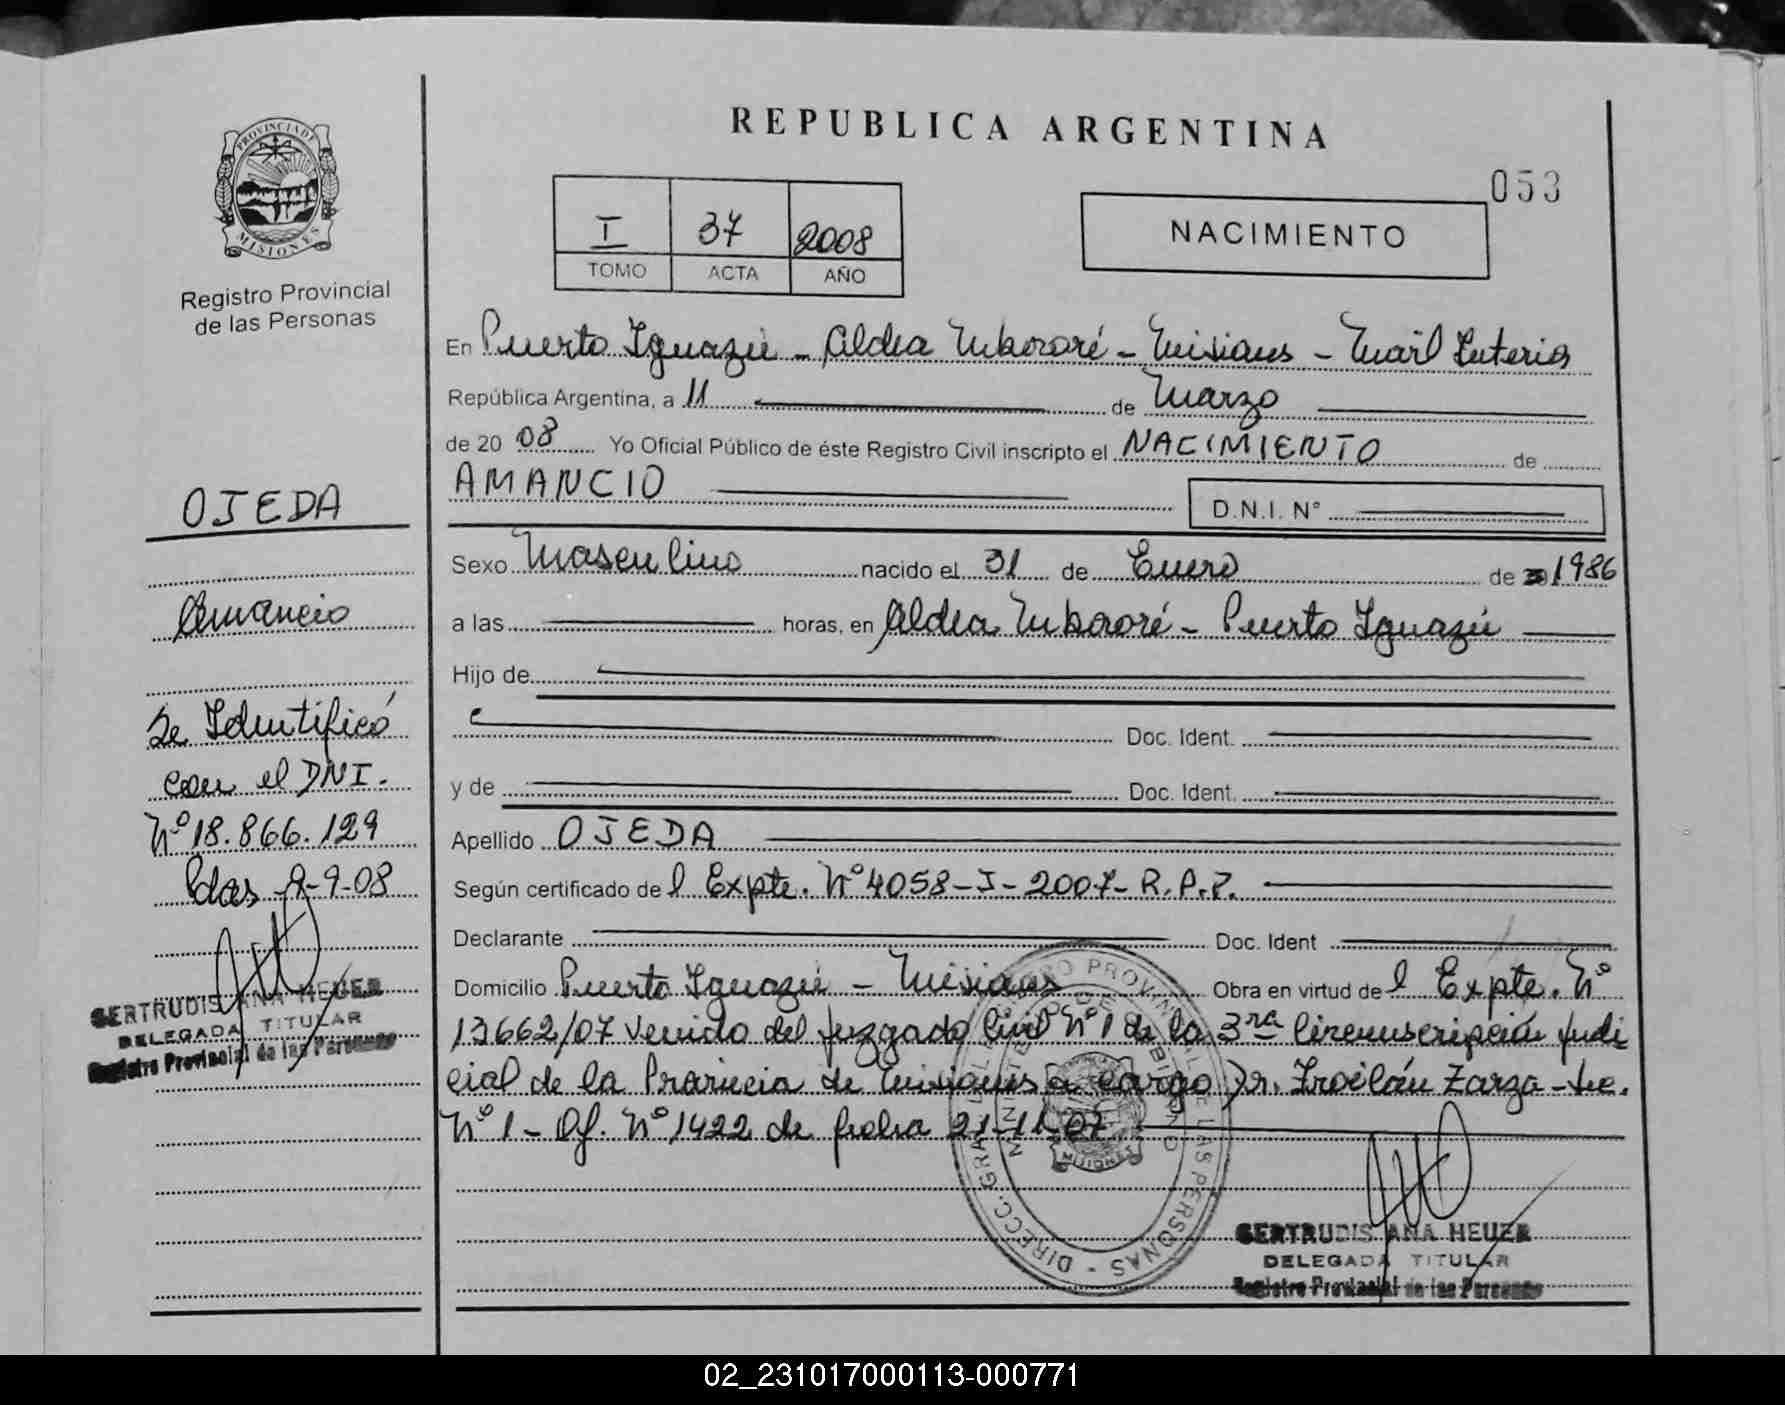 REPUBLICA ARGENTINA
053
PROVINCIA DE
MISIONES
Registro Provincial
de las Personas
I 37 2008
TOMO ACTA AÑO
NACIMIENTO
En Puerto Iguazú - Aldea Mbororé - Misiones -
República Argentina, a 11 de Marzo
de 2008 Yo Oficial Público de éste Registro Civil inscripto el NACIMIENTO de
AMANCIO
D.N.I. N°
Sexo Masculino nacido el 31 de Enero de 1986
a las horas, en Aldea Mbororé - Puerto Iguazú
Hijo de
Doc. Ident.
y de Doc. Ident.
Apellido OJEDA
Según certificado de l Expte. N° 4058-I-2007-R.P.P.
Declarante Doc. Ident
Domicilio Puerto Iguazú - Misiones Obra en virtud de l Expte. N°
13662/07 venido del Juzgado Civil N° 1 de la 3ra Circunscripción Judi
cial de la Provincia de Misiones a cargo Dr. Froilán Zarza - Sec.
N° 1 - Of. N° 1422 de fecha 21-11-07
OJEDA
Amancio
Se Identificó
con el DNI.
N° 18.866.129
Pdas 9-9-08
GERTRUDIS ANA HEUER
DELEGADA TITULAR
Registro Provincial de las Personas
MISIONES
GERTRUDIS ANA HEUER
DELEGADA TITULAR
Registro Provincial de las Personas
02_231017000113-000771